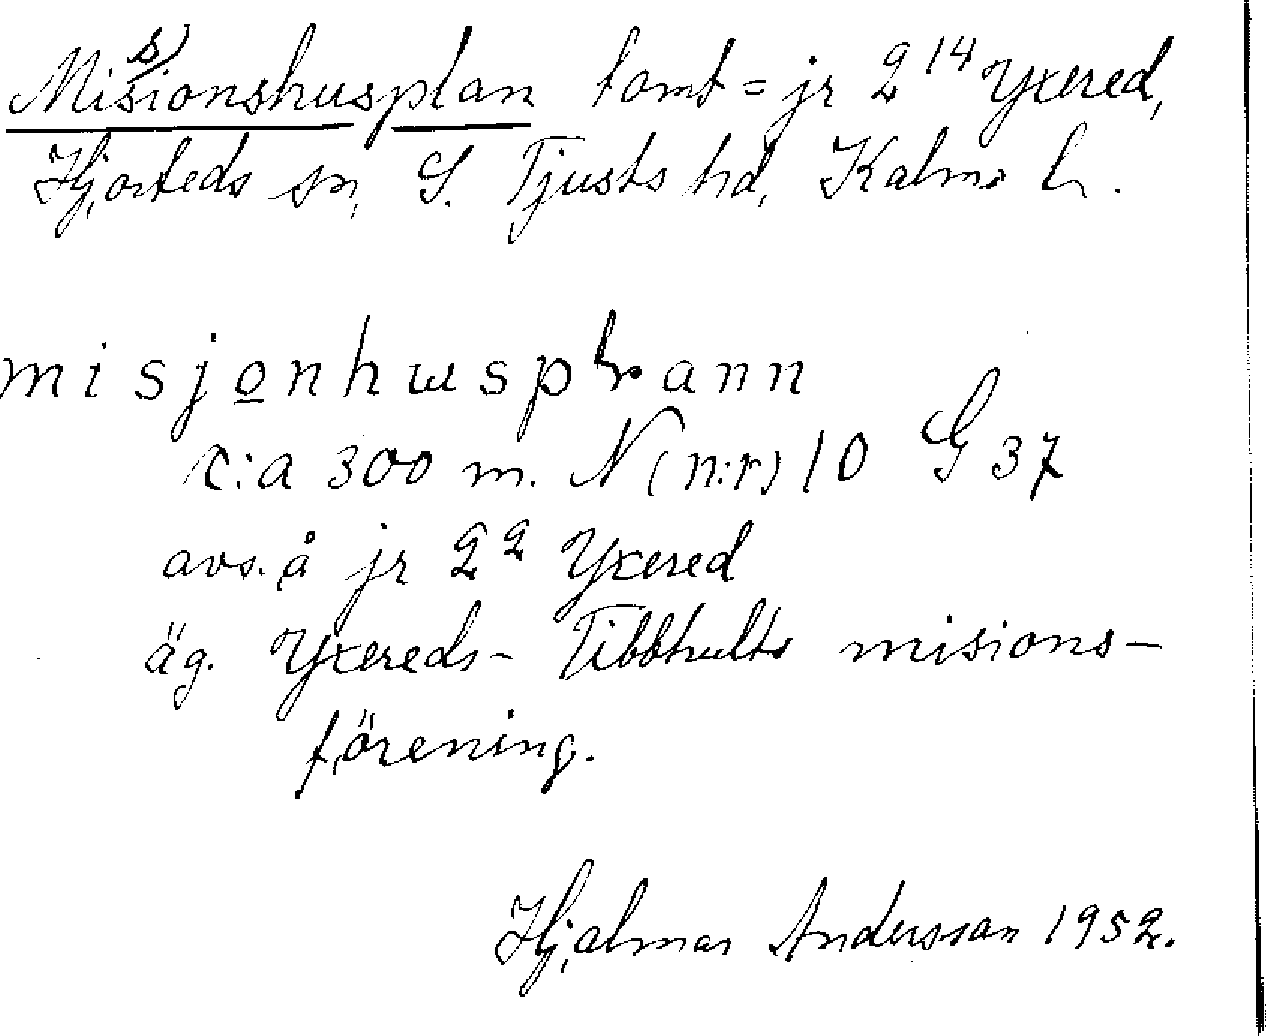 Mis(s)ionshusplan tomt = jr 2¹⁴ Yxered,
Hjorteds sn, S. Tjusts hd, Kalmar l.
misjo̲nhusplann
c:a 300 m. N (n:r) 10 G 37
avs. å jr 2² Yxered
äg. Yxereds- Tibbhults misions-
förening.
Hjalmar Andersson 1952.